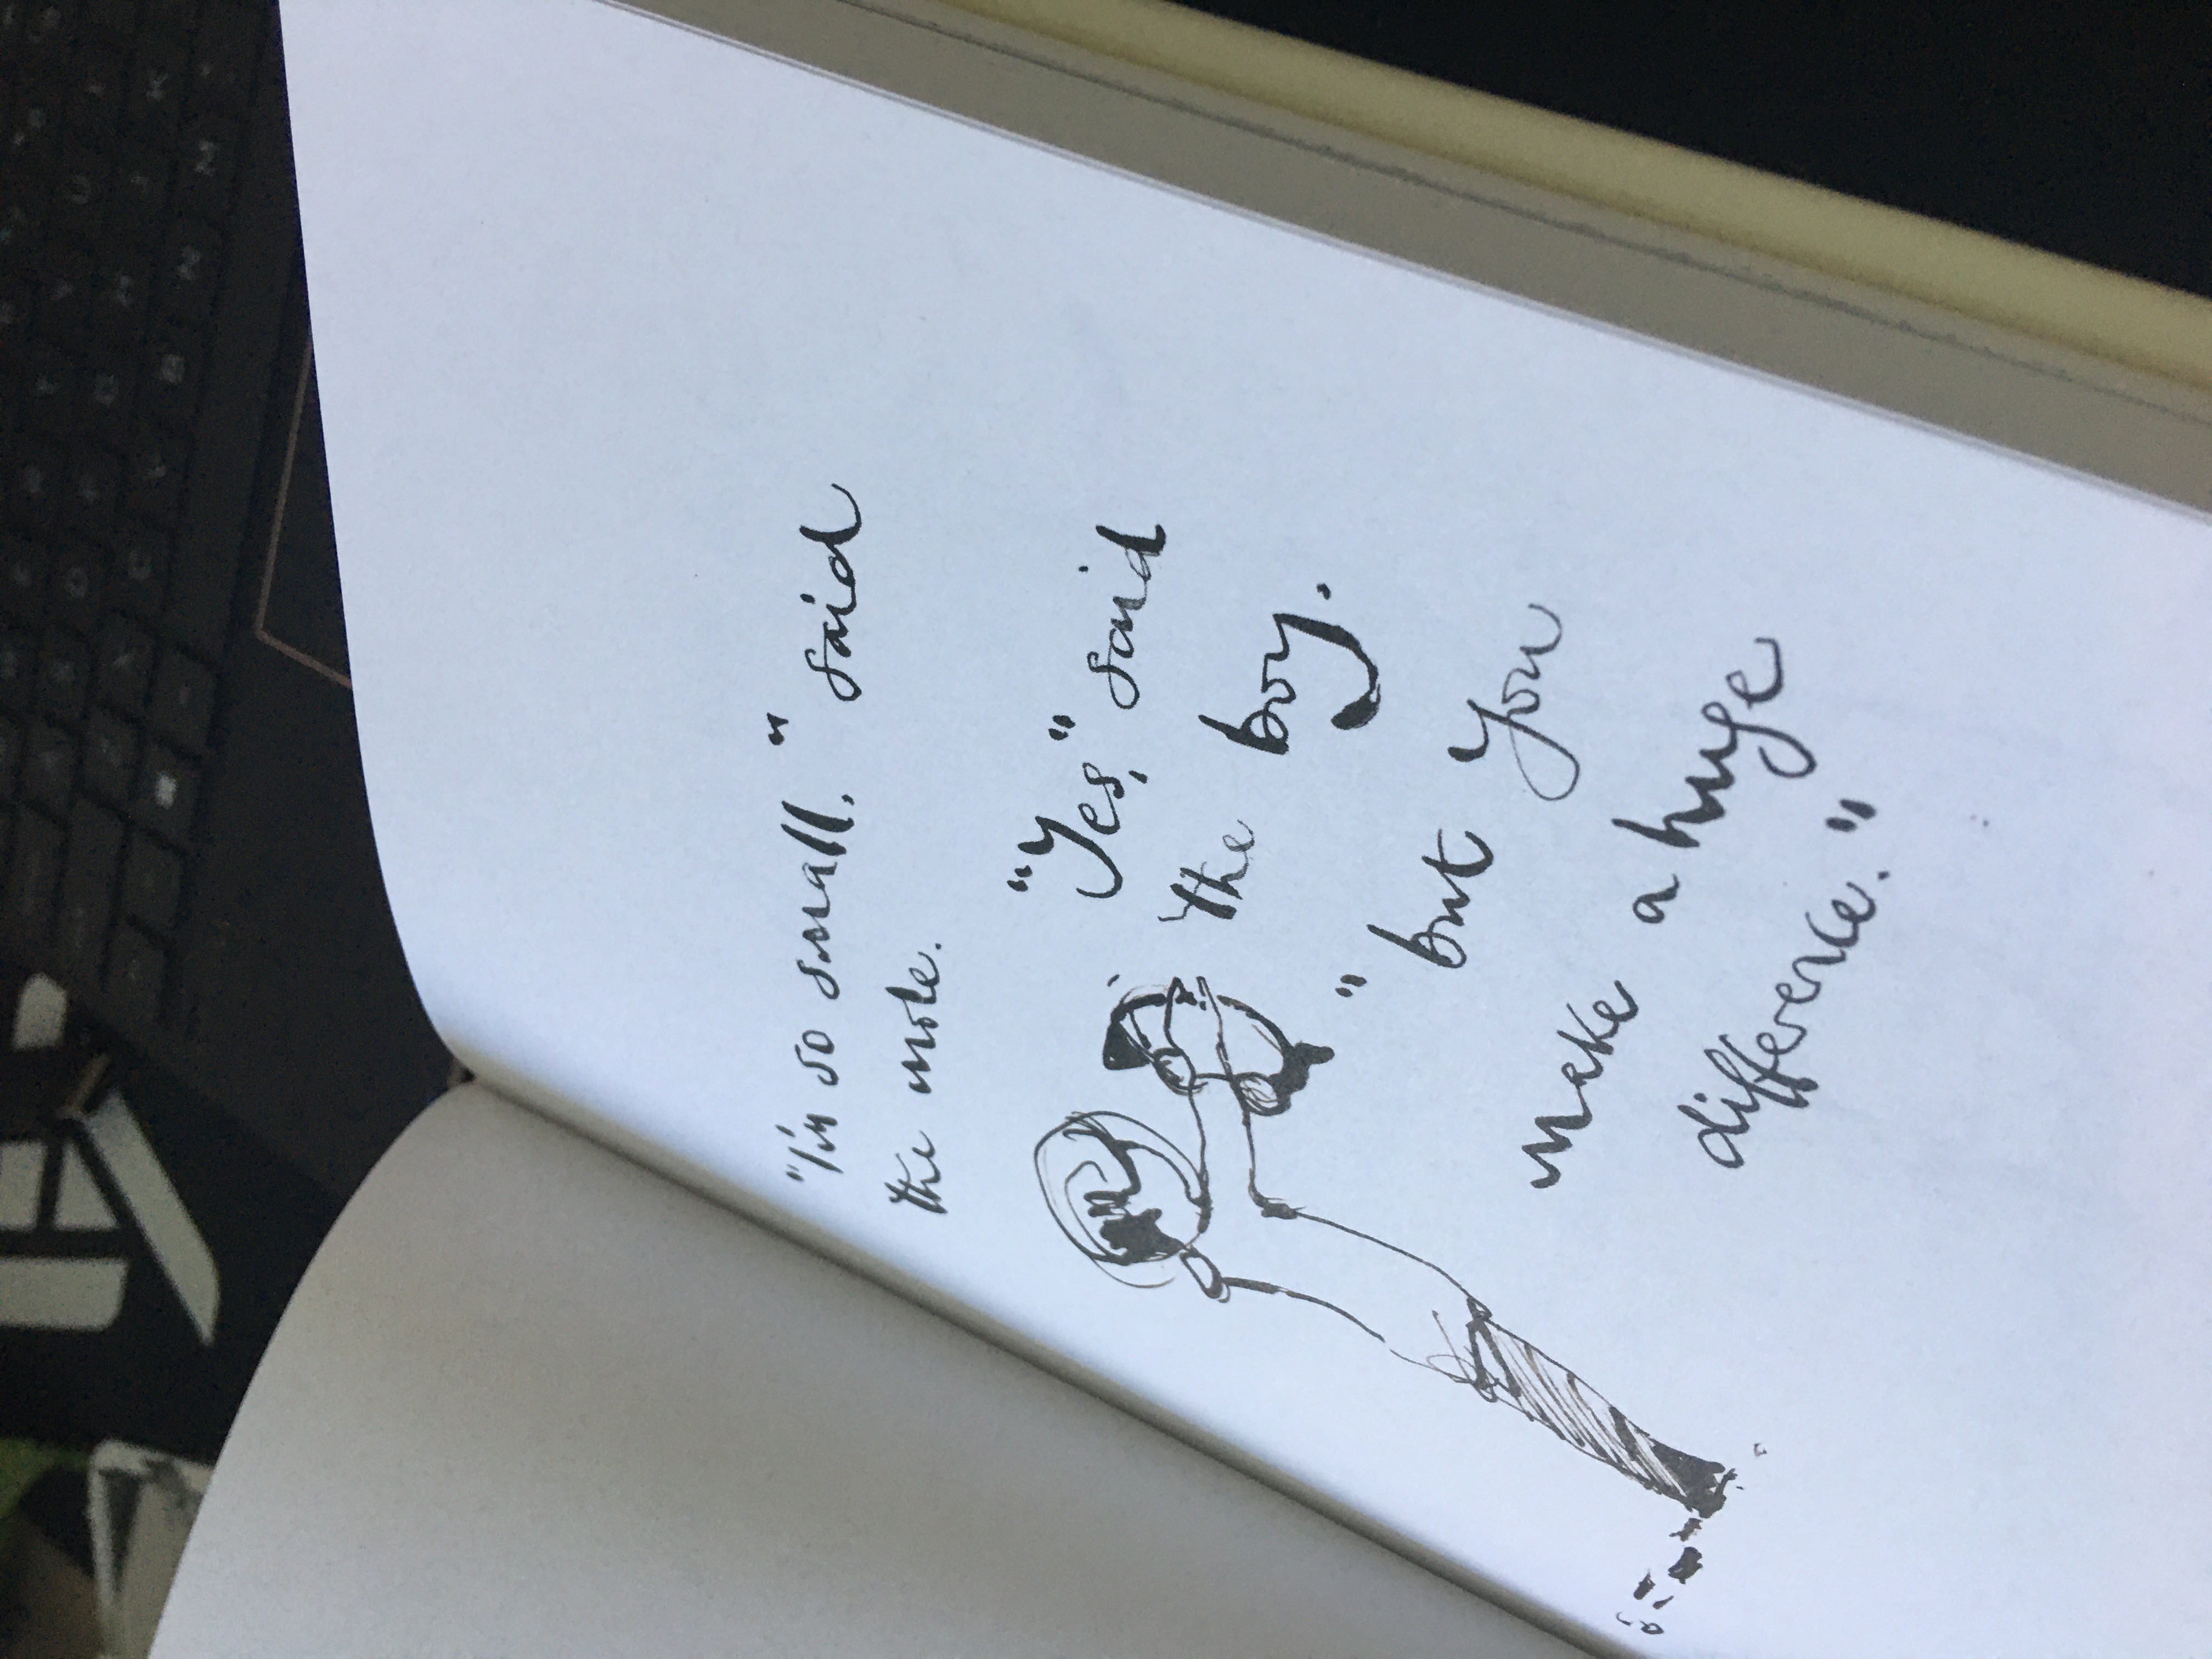 "I'm so small," said
the mole.
"Yes," said
the boy.
"but you
make a huge
difference."